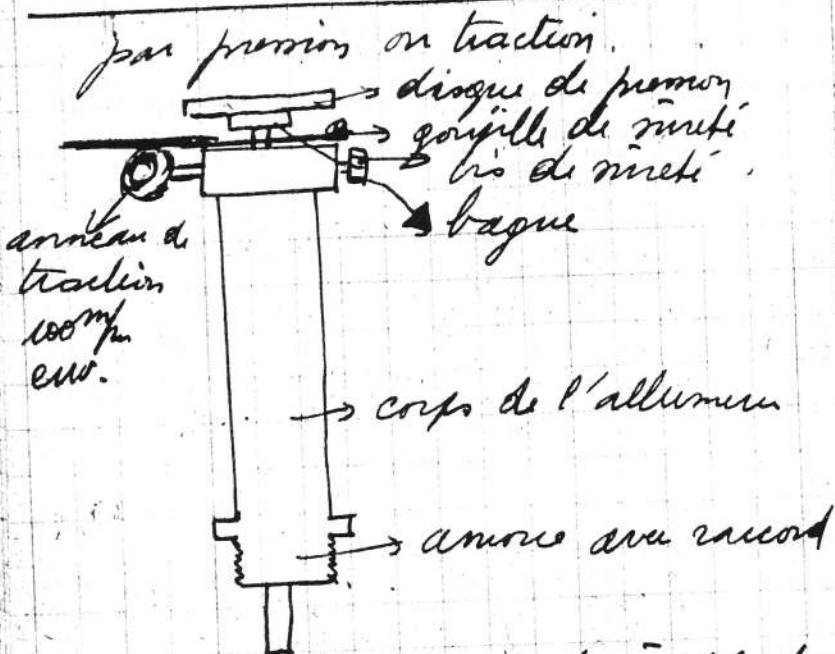 par pression ou traction.
disque de pression
goupille de sûreté
vis de sûreté.
bague
anneau de
traction
100 m/m
env.
corps de l'allumeur
amorce avec raccord